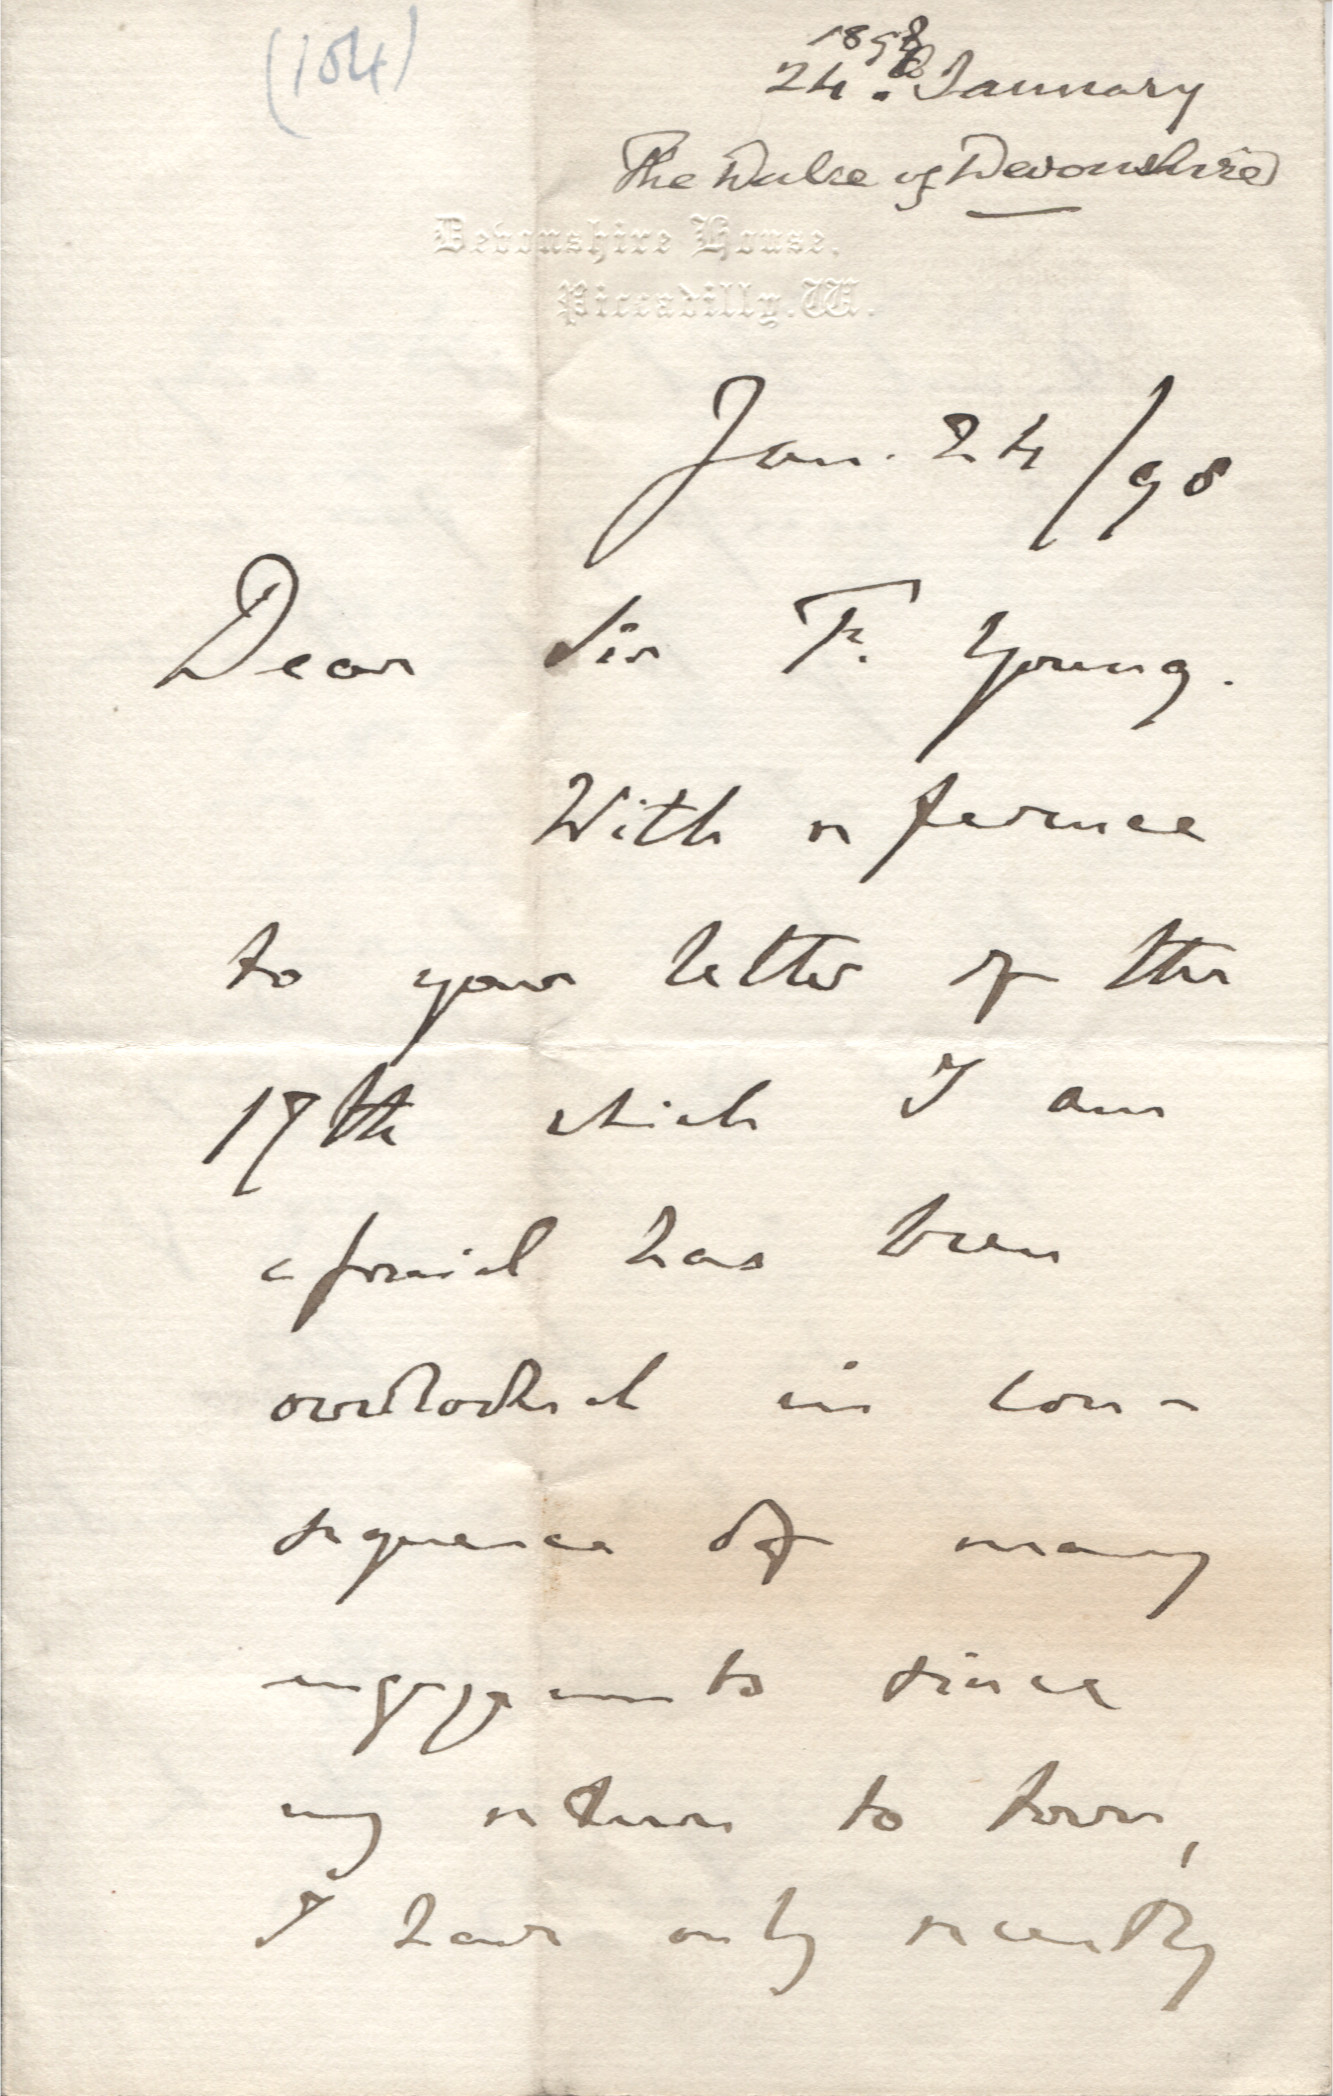 (104)
1898
24. January
The Duke of Devonshire
Devonshire House,
Piccadilly. W.
Jan. 24/98
Dear Sir F. Young.
With reference
to your letter of the
17th which I am
afraid has been
overlooked in con-
sequence of many
engagements since
my return to town,
I have only recently